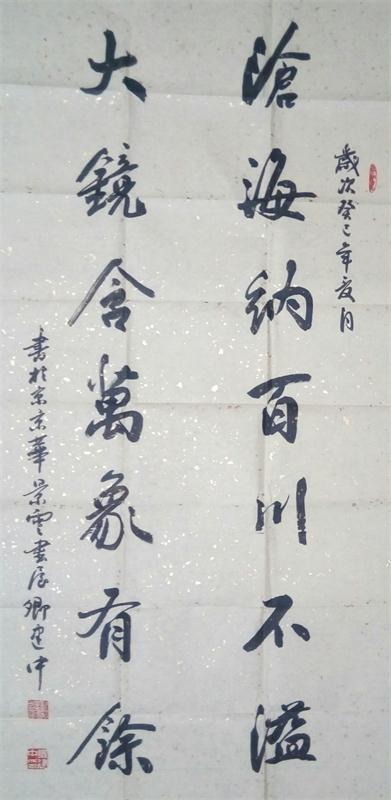 歲次癸巳年夏月
滄海納百川不溢
大鏡含萬象有餘
書於京華景雲書屋鄉建中